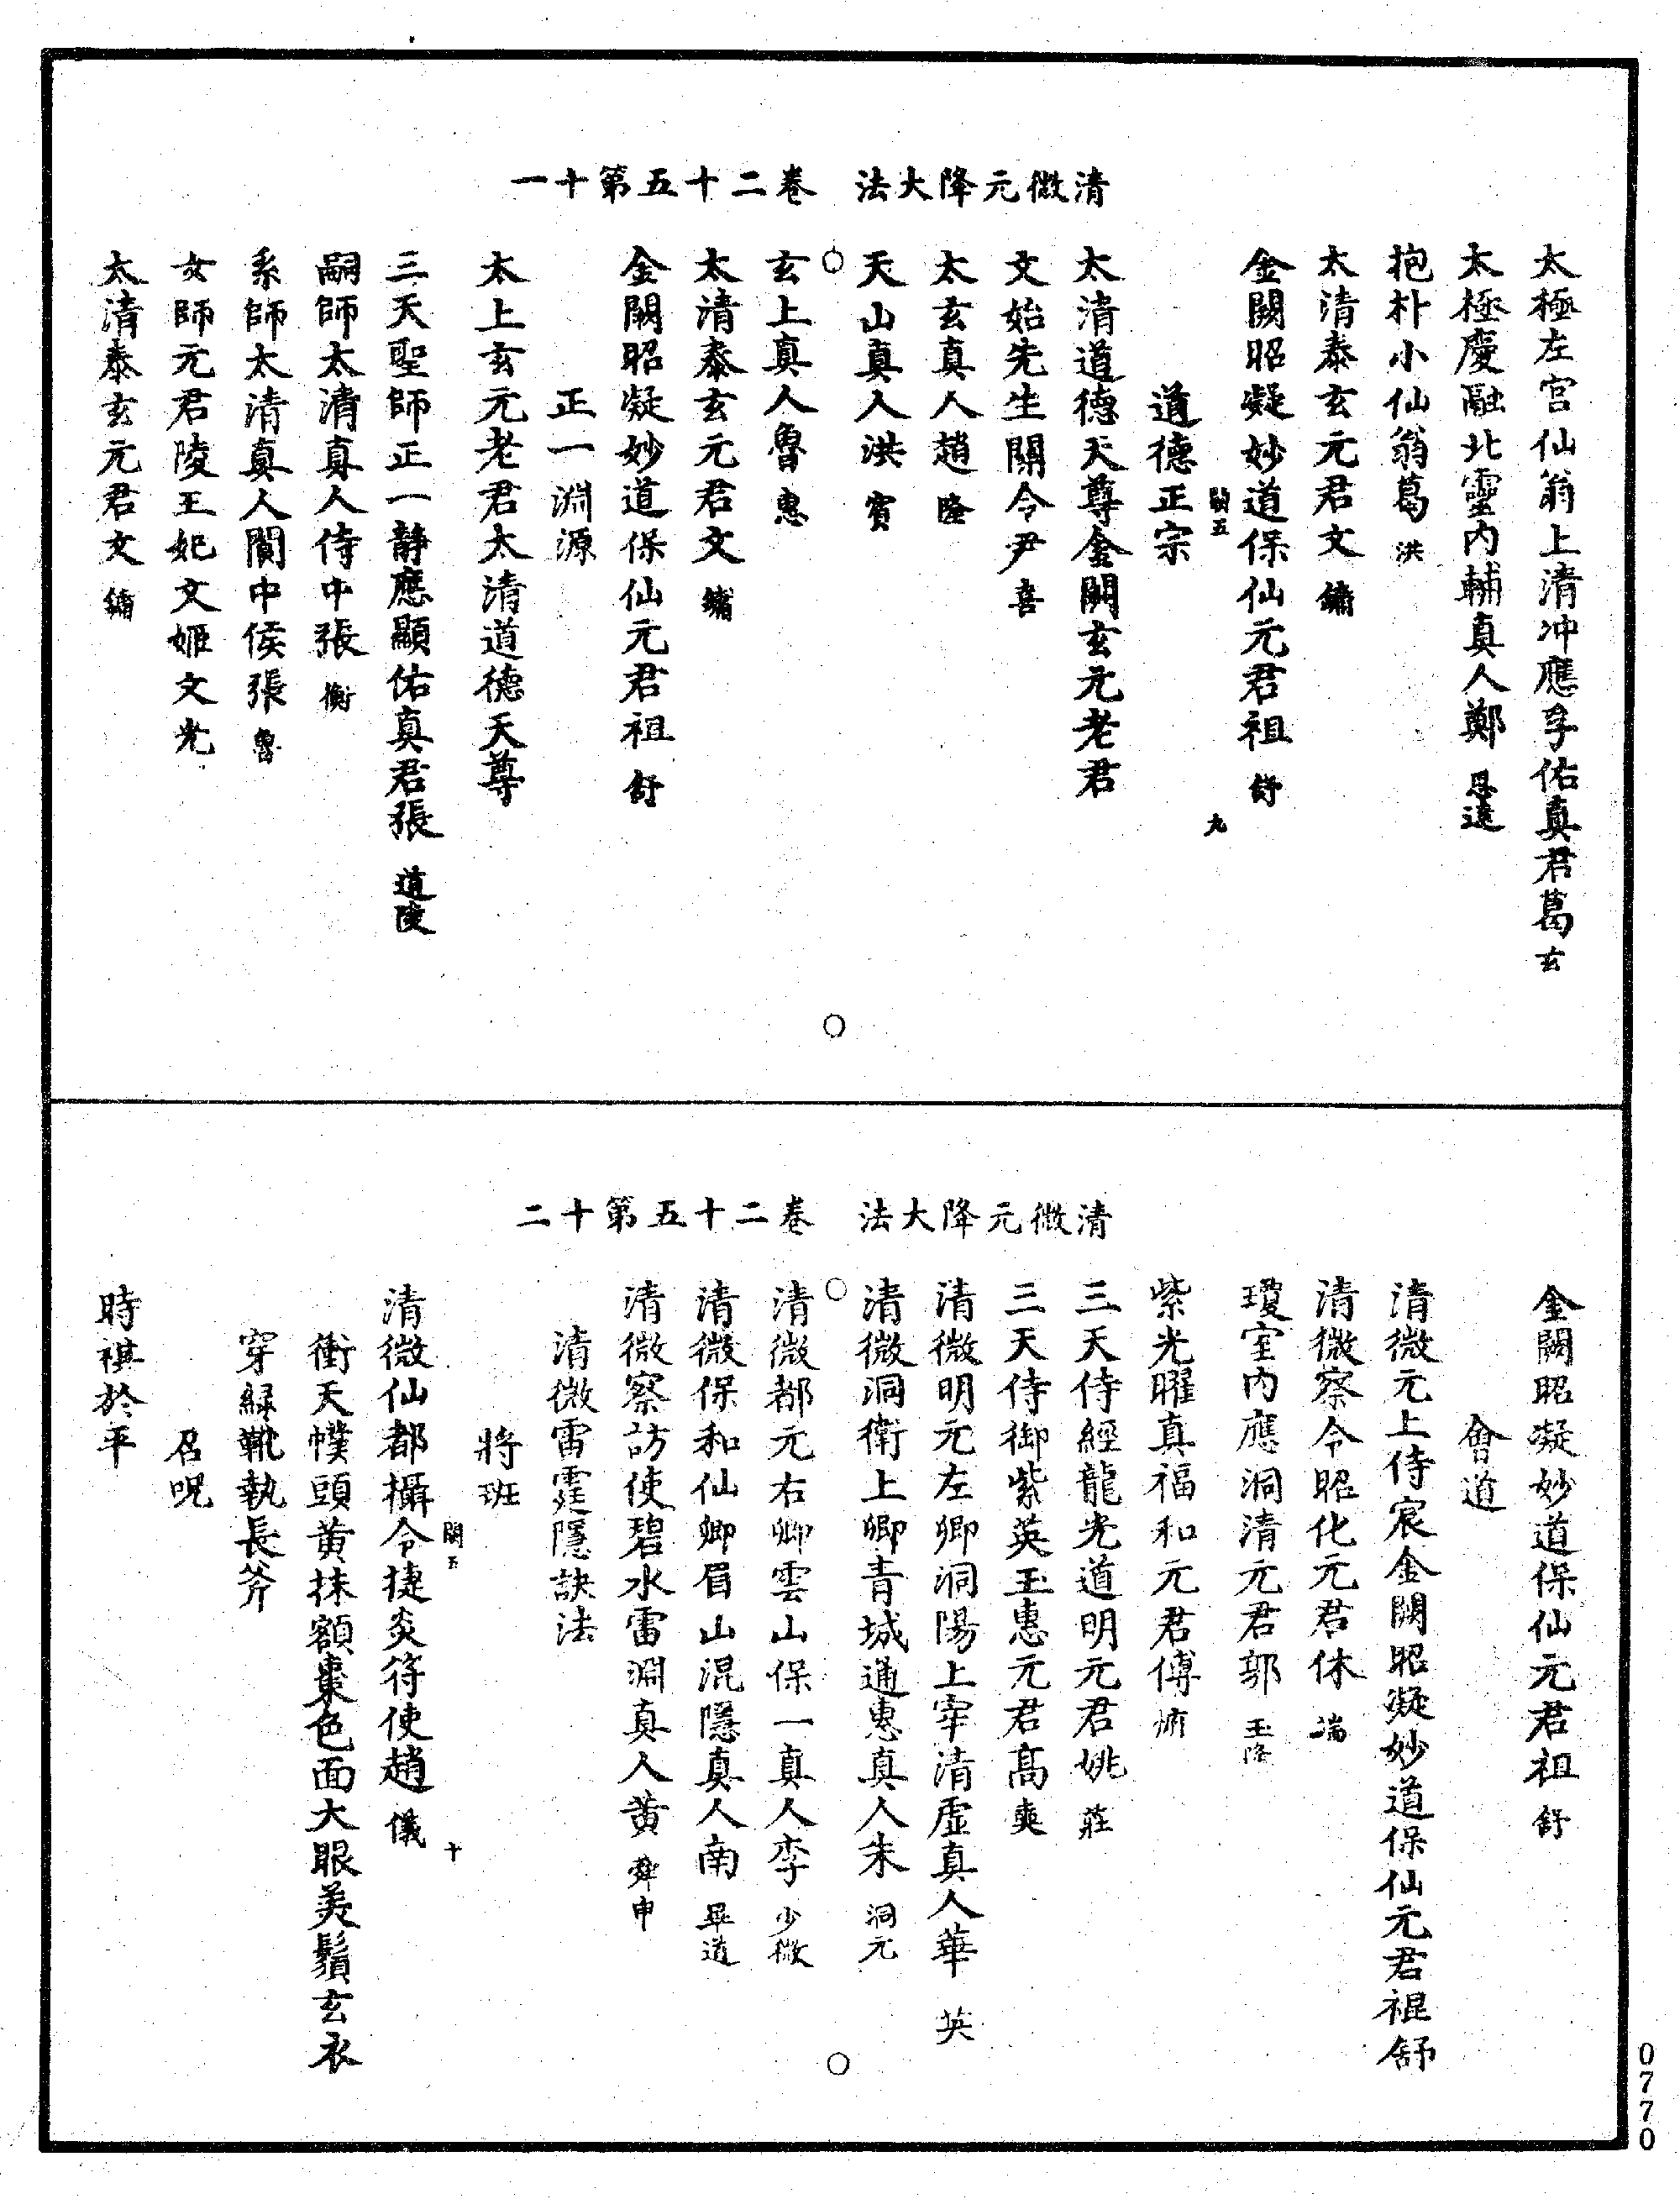 清微元降大法　卷二十五第十一
太極左宮仙翁上清冲應孚佑真君葛玄
太極慶融北靈內輔真人鄭思遠
抱朴小仙翁葛洪
太清泰玄元君文鏞
金闕昭凝妙道保仙元君祖舒
闕五　九
道德正宗
太清道德天尊金闕玄元老君
文始先生關令尹喜
太玄真人趙隆
天山真人洪賓
玄上真人魯惠
太清泰玄元君文鏞
金闕昭凝妙道保仙元君祖舒
正一淵源
太上玄元老君太清道德天尊
三天聖師正一靜應顯佑真君張道陵
嗣師太清真人侍中張衡
系師太清真人閬中侯張魯
女師元君陵王妃文姬文光
太清泰玄元君文鏞
清微元降大法　卷二十五第十二
金闕昭凝妙道保仙元君祖舒
會道
清微元上侍宸金闕昭凝妙道保仙元君祖舒
清微察令昭化元君休端
瓊室內應洞清元君郭玉隆
紫光曜真福和元君傅
三天侍經龍光道明元君姚莊
三天侍御紫英玉惠元君高奭
清微明元左卿洞陽上宰清虛真人華英
清微洞衛上卿青城通惠真人朱洞元
清微都元右卿雲山保一真人李少微
清微保和仙卿眉山混隱真人南畢道
清微察訪使碧水雷淵真人黃舜申
清微雷霆隱訣法
將班
闕五　十
清微仙都攝令捷炎符使趙儀
衝天幞頭黃抹額棗色面大眼美鬚玄衣
穿綠靴執長斧
召呪
時褀於平
0770